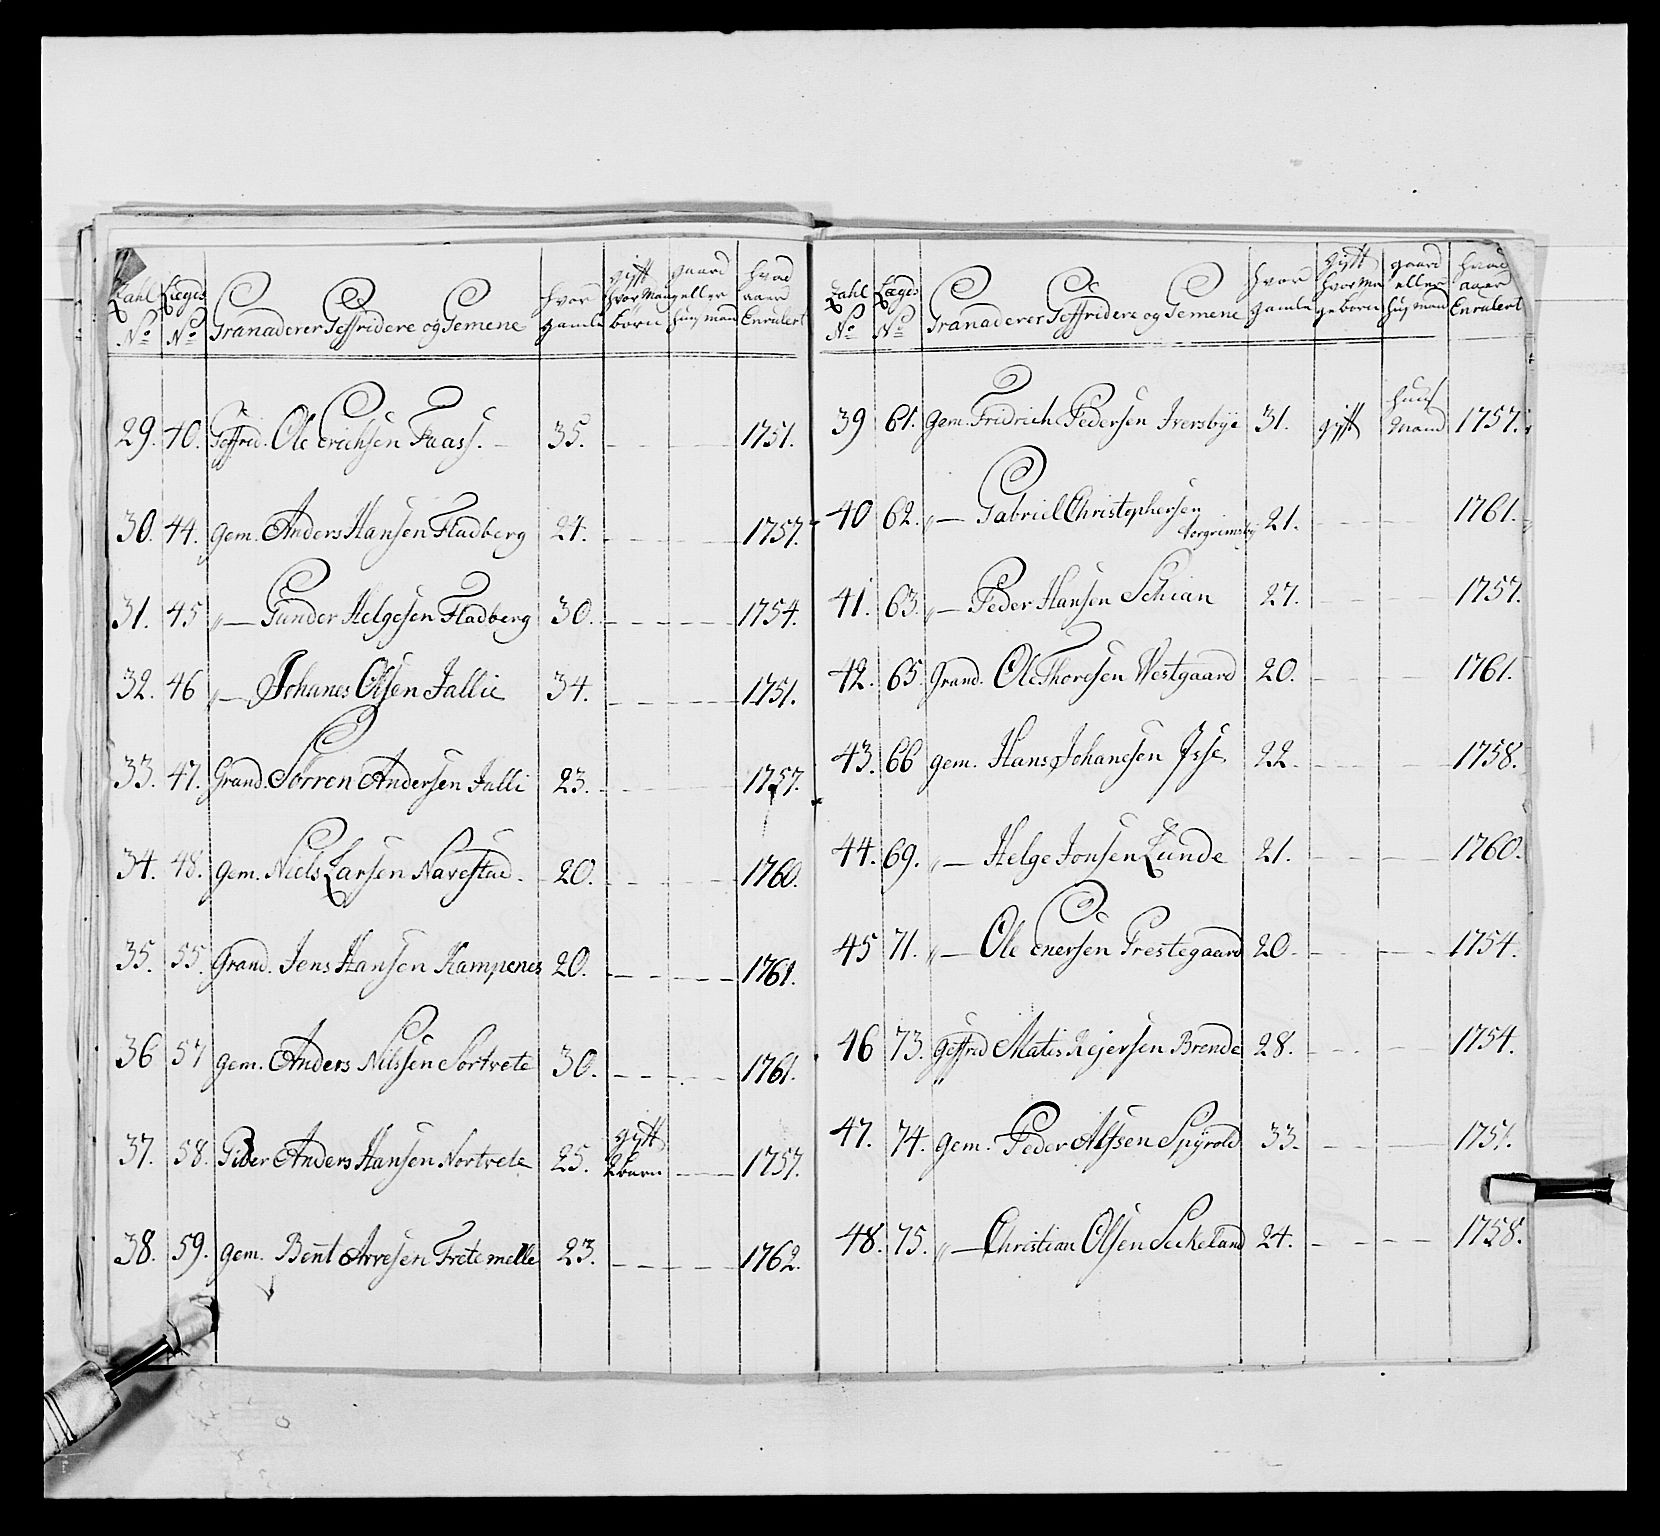 Zahl Lægds Granaderer Geffridere og Gemene hvor gamle gift hvor Mang børn gaard eller huusmand hvad aaer Enrulert
No No
29. 40. Geffrid. Ole Erichsen Faass. 35. 1751.
30. 44. Gem. Anders Hansen Fladberg 21. 1757.
31. 45 〃 — Gunder Helgesen Fladberg 30. 1754.
32. 46 〃 — Johanes Olsen Jallie 34. 1751.
33. 47. Grand. Sörren Andersen Jalli 23. 1757.
34. 48. Gem. Niels Larsen Navestad 20. 1760.
35. 55. Grand. Jens Hansen Kampenes 20. 1761.
36 57 Gem. Anders Nilssen Sortvete 30. 1761.
37. 58. Anders Hansen Nortvete 25. gift 2 barn 1757.
38. 59. Gem. Bent Arvesen Tretemelle 23. 1762.
Zahl Lægds Granaderer Geffridere og Gemene hvor gamle gift hvor Ma geborn gaard eller huusmand hvad aaer Enrulert
No No
39 61. Gem. Fridrich Pedersen Iversbÿe 31. gift huus Mand 1757.
40 62. 〃 — Gabriel Christophersen 21. 1761.
Torgrimsby
41. 63. 〃 — Peder Hansen Schian 27. 1757.
42. 65. Grand. Ole Thoresen Westgaard 20. 1761.
43. 66 Gem. Hans Johanesen Isse 22. 1758.
44. 69. 〃 — Helge Jonsen Lunde 21. 1760.
45 71. 〃 — Ole Enersen Prestegaard 20. 1754.
46 73. Geffrid Matis Rejersen Brende 28. 1754.
47. 74. Gem. Peder Alfsen Spÿrold 33. 1751.
48. 75. 〃 — Christian Olsen Seekeland 24. 1758.